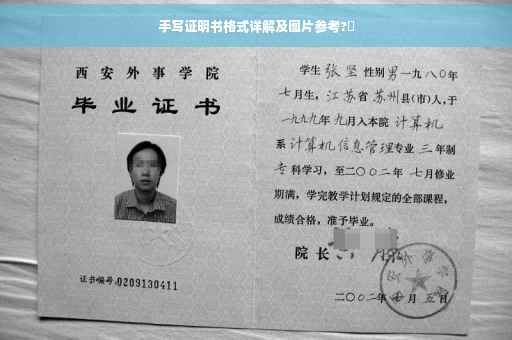 手写证明书格式详解及图片参考?
西安外事学院
毕业证书
证书编号:0209130411
学生 张坚 性别 男 一九八〇年
七月生, 江苏省 苏州县(市)人,于
一九九九年 九月入本院 计算机
系 计算机信息管理专业 三 年制
专科学习,至二〇〇二年 七月修业
期满,学完教学计划规定的全部课程,
成绩合格,准予毕业。
院长
二〇〇二年 七月 五日